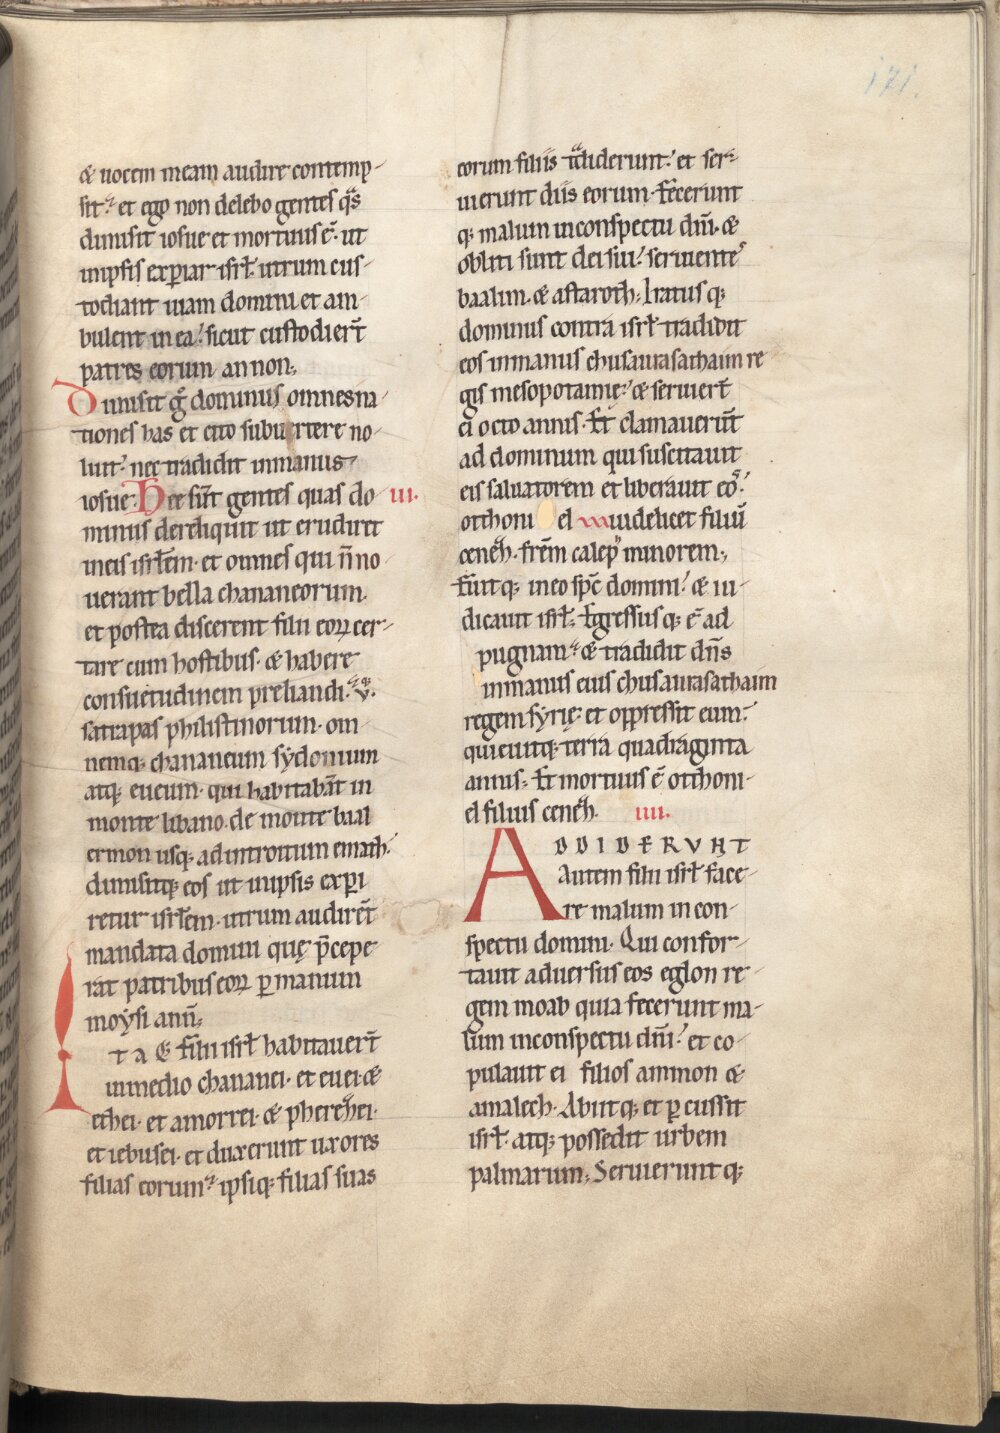 171.
& uocem meam audire contemp-
sit. et ego non delebo gentes q̅s
dimisit iosue et mortuus e̅. ut
in ipsis exp̅iar isrl̅. utrum cus-
todiant uiam domini et am-
bulent in ea. sicut custodier̅t
patres eorum an non;
Dimisit g̅ dominus omnes na-
tiones has et cito subuertere no-
luit. nec tradidit in manus
iosue. Hee su̅t gentes quas do- III.
minus dereliquit ut erudiret
in eis isrl̅em. et omnes qui n̅ no-
uerant bella chananeorum.
et postea discerent filii eoꝝ cer-
tare cum hostibus. & habere
consuetudinem preliandi. v̅.
satrapas philistinorum. om-
nemq; chananeum sydonium
atq; eueum. qui habitaba̅t in
monte libano. de monte baal
ermon usq; ad introitum emath.
dimisitq; eos ut in ipsis exp̅i
retur isrl̅em. utrum audire̅t
mandata domini quę p̅cepe-
rat patribus eoꝝ p̅ manum
moysi an n̅;
ITAE filii isrl̅ habitauer̅t
in medio chananei. et euei. &
ethei. et amorrei. & pherehei.
et iebusei. et duxerunt uxores
filias eorum. ipsiq; filias suas
eorum filiis t̅diderunt. et ser-
uierunt diis eorum. Fecerunt
q; malum in conspectu dn̅i. &
obliti sunt dei sui. seruientes
baalim. & astaroth; Iratus q;
dominus contra isrl̅ tradidit
eos in manus chusanrasathaim re
gis mesopotamię. & seruier̅t
ei octo annis. Et clamaueru̅t
ad dominum qui suscitauit
eis saluatorem et liberauit eos.
otthoni el uidelicet filiu̅
ceneh. fr̅em caleph minorem;
Fuitq; in eo sp̅c domini. & iu-
dicauit isrl̅; Egressus q; e̅ ad
pugnam. & tradidit dn̅s
in manus eius chusanrasathaim
regem syrię. et oppressit eum.
quieuitq; terra quadraginta
annis; Et mortuus e̅ otthoni-
el filius ceneh. IIII.
ADDIDERVNT
Autem filii isrl̅ face-
re malum in con-
spectu domini. Qui confor-
tauit aduersus eos eglon re-
gem moab quia fecerunt ma-
lum in conspectu dn̅i. et co-
pulauit ei filios ammon &
amalech. Abiit q; et p̅cussit
isrl̅. atq; possedit urbem
palmarum; Seruierunt q;